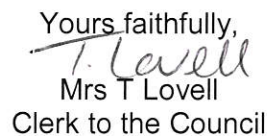 Yours faithfully,
T. Lovell
Mrs T Lovell
Clerk to the Council